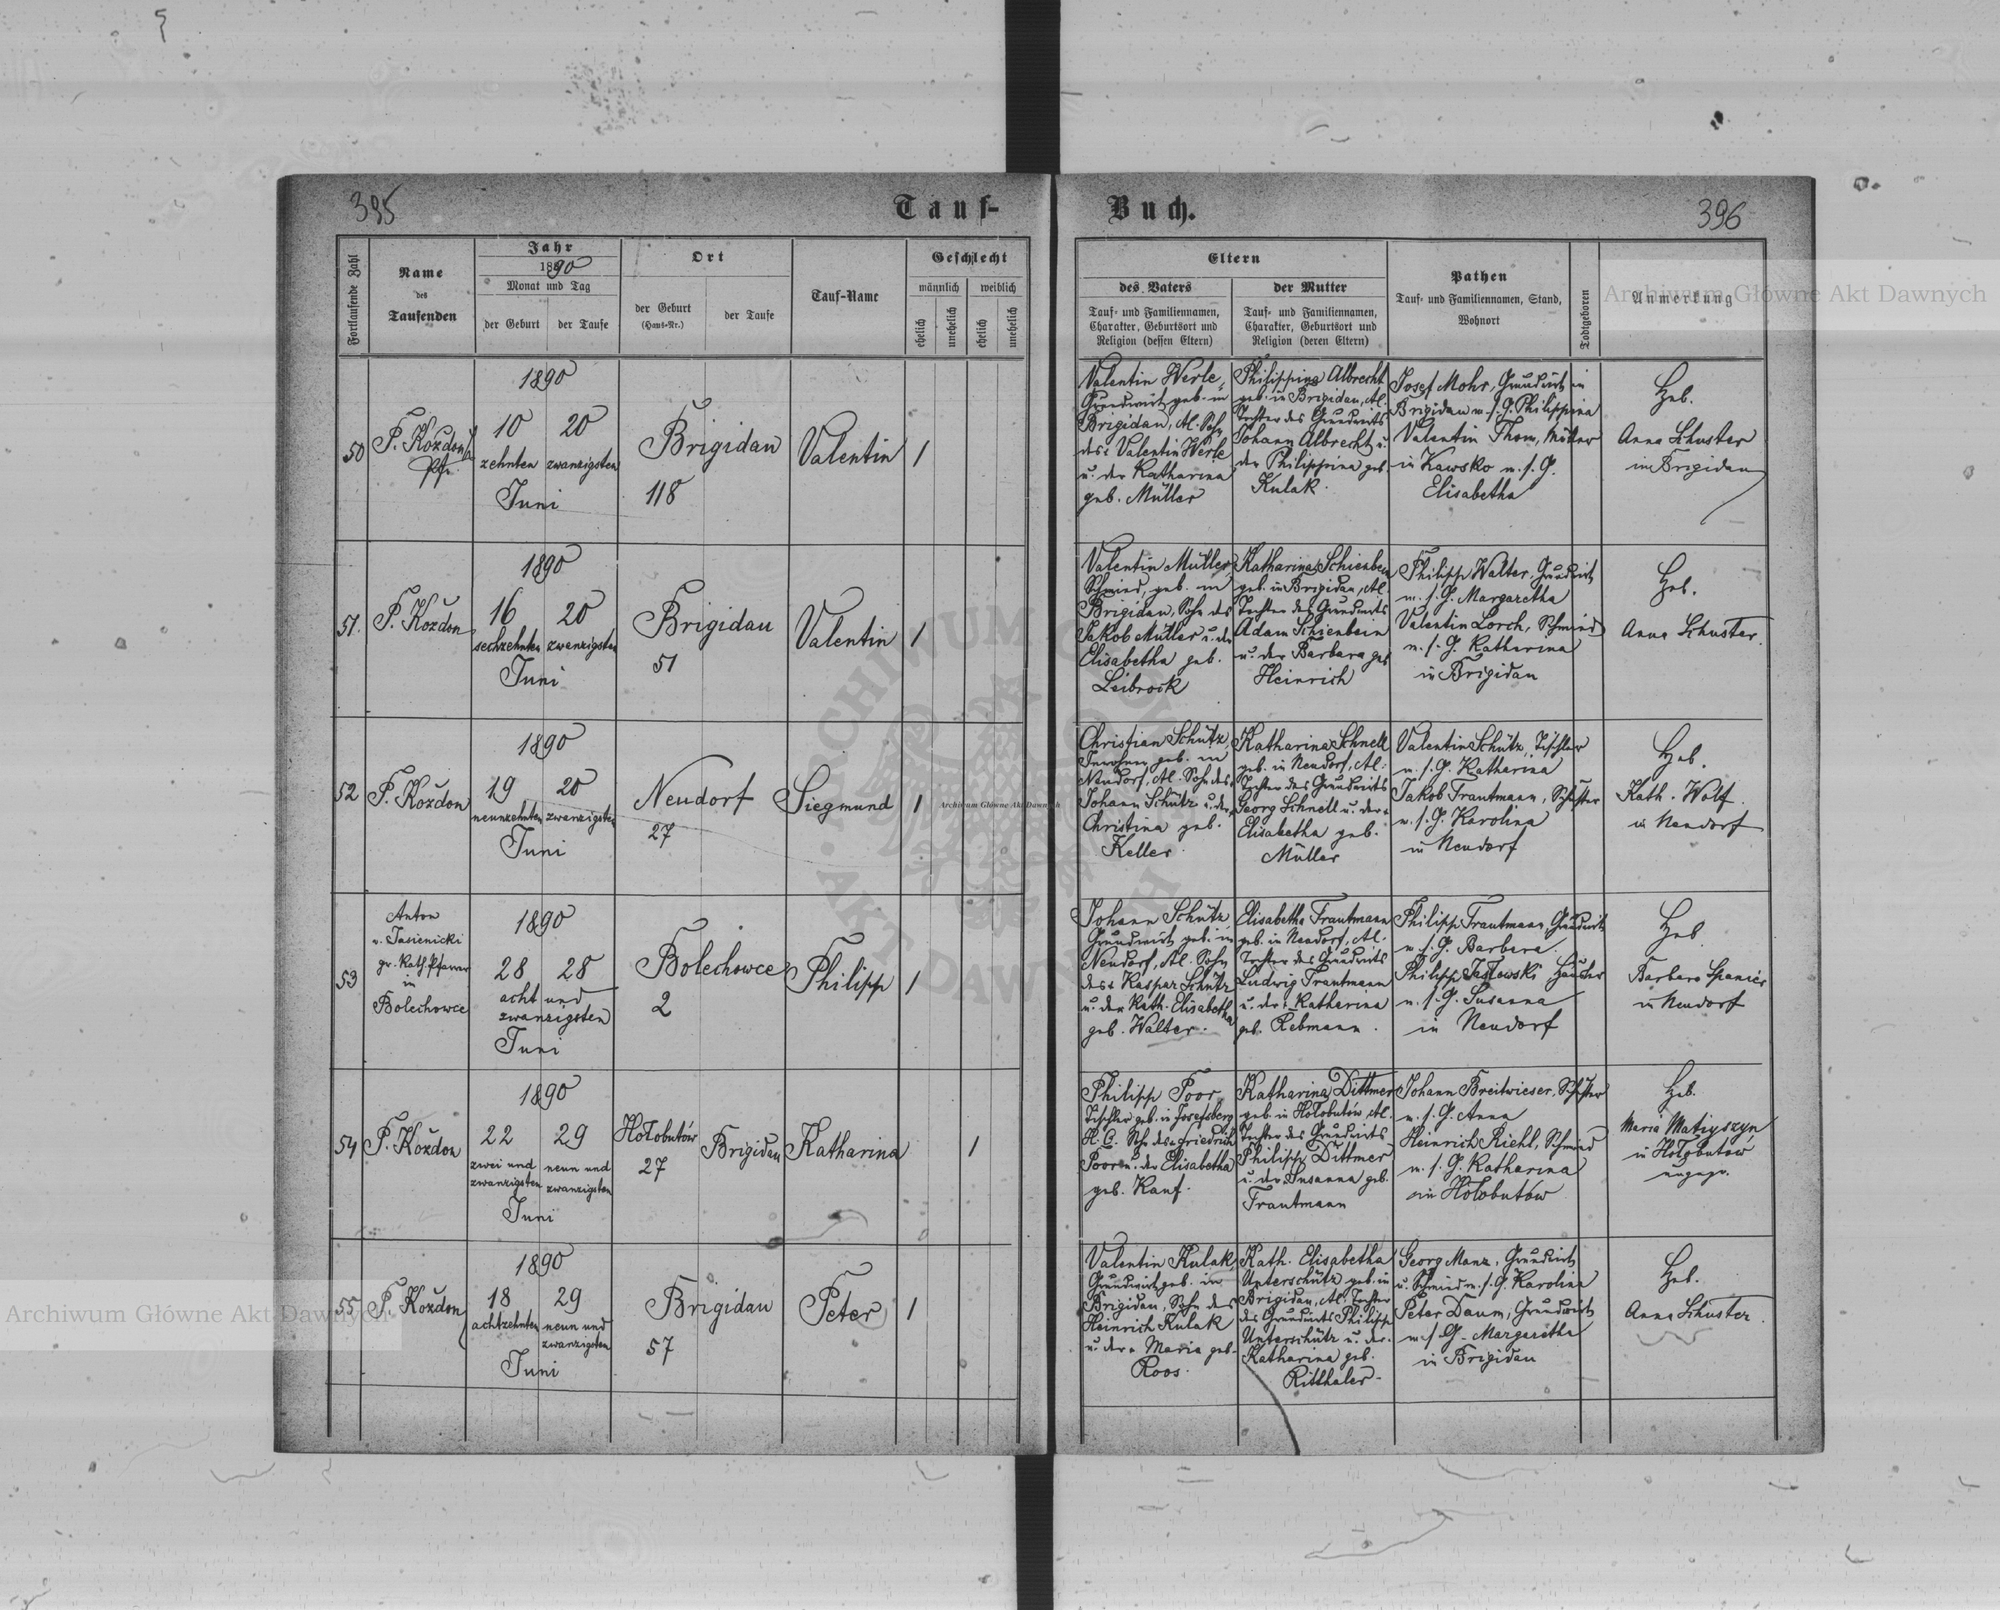 395
Tauf-
Buch.
396
Fortlaufende Zahl
Name
des
Taufenden
Jahr
1890
Monat und Tag
der Geburt
der Taufe
Ort
der Geburt
(Haus-Nr.)
der Taufe
Tauf-Name
Geschlecht
männlich
weiblich
ehelich
unehelich
ehelich
unehelich
Eltern
des Vaters
Tauf- und Familiennamen,
Charakter, Geburtsort und
Religion (dessen Eltern)
der Mutter
Tauf- und Familiennamen,
Charakter, Geburtsort und
Religion (deren Eltern)
Pathen
Tauf- und Familiennamen, Stand,
Wohnort
Todtgeboren
Anmerkung
50
P. Kozdon
Pfr.
1890
10
zehnten
20
zwanzigsten
Juni
Brigidau
118
Valentin
1
Valentin Werle,
Grundwirt geb. in
Brigidau, Al. Sohn
des Valentin Werle
u. der Katharina
geb. Müller
Philippina Albrecht
geb. in Brigidau, Al.
Tochter des Grundwirts
Johann Albrecht u.
der Philippina geb.
Kulak.
Josef Mohr, Grundwirt in
Brigidau m. s. G. Philippina
Valentin Thom, Müller
in Kawsko m. s. G.
Elisabetha
Heb.
Anna Schuster
in Brigidau
51.
P. Kozdon
1890
16
sechzehnten
20
zwanzigsten
Juni
Brigidau
51
Valentin
1
Valentin Müller,
Schmied, geb. in
Brigidau, Sohn des
Jakob Müller u. der
Elisabetha geb.
Leibrock
Katharina Schienbein
geb. in Brigidau, Al.
Tochter des Grundwirts
Adam Schienbein
u. der Barbara geb.
Heinrich
Philipp Walter, Grundwirt
m. s. G. Margaretha
Valentin Lorch, Schmied
m. s. G. Katharina
in Brigidau
Heb.
Anna Schuster.
52
P. Kozdon
1890
19
neunzehnten
20
zwanzigsten
Juni
Neudorf
27
Siegmund
1
Christian Schütz,
Inwohner geb. in
Neudorf, Al. Sohn des
Johann Schütz u. der
Christina geb.
Keller.
Katharina Schnell
geb. in Neudorf, Al.
Tochter des Grundwirts
Georg Schnell u. der
Elisabetha geb.
Müller
Valentin Schütz, Tischler
m. s. G. Katharina
Jakob Trautmann, Schuster
m. s. G. Karolina
in Neudorf
Heb.
Kath. Wolf.
in Neudorf
53
Anton
v. Jasienicki
gr. Kath. Pfarrer
in
Bolechowce
1890
28
28
acht und
zwanzigsten
Juni
Bolechowce
2
Philipp
1
Johann Schütz
Grundwirt geb. in
Neudorf, Al. Sohn
des Kaspar Schütz
u. der Kath. Elisabetha
geb. Walter.
Elisabetha Trautmann
geb. in Neudorf, Al.
Tochter des Grundwirts
Ludwig Trautmann
u. der Katharina
geb. Rebmann.
Philipp Trautmann, Grundwirt
m. s. G. Barbara.
Philipp
m. s. G. Susanna
in Neudorf
Heb
Barbara Spanier
in Neudorf
54
P. Kozdon
1890
22
zwei und
zwanzigsten
29
neun und
zwanzigsten
Juni
Hołobutów
27
Brigidau
Katharina
1
Philipp Poor,
Tischler geb. in Josefsberg
H. C. Sohn des Friedrich
Poor u. der Elisabetha
geb. Kauf.
Katharina Dittmer
geb. in Hołobutów, Al.
Tochter des Grundwirts
Philipp Dittmer
u. der Susanna geb.
Trautmann
Johann Breitwieser, Schuster
m. s. G. Anna
Heinrich Riehl, Schmied
m. s. G. Katharina
in Hołobutów
Heb.
Maria Matiyszyn
in Hołobutów
ungepr.
55
P. Kozdon
1890
18
achtzehnten
29
neun und
zwanzigsten
Juni
Brigidau
57
Peter
1
Valentin Kulak
Grundwirt geb. in
Brigidau, Sohn des
Heinrich Kulak
u. der Maria geb.
Roos.
Kath. Elisabetha
Unterschütz geb. in
Brigidau, Al. Tochter
des Grundwirts Philipp
Unterschütz u. der
Katharina geb.
Ritthaler.
Georg Manz, Grundwirt
u. Schmied m. s. G. Karolina
Peter Daum, Grundwirt
m. s. G. Margaretha
in Brigidau
Heb.
Anna Schuster.
Archiwum Główne Akt Dawnych
Archiwum Główne Akt Dawnych
Archiwum Główne Akt Dawnych